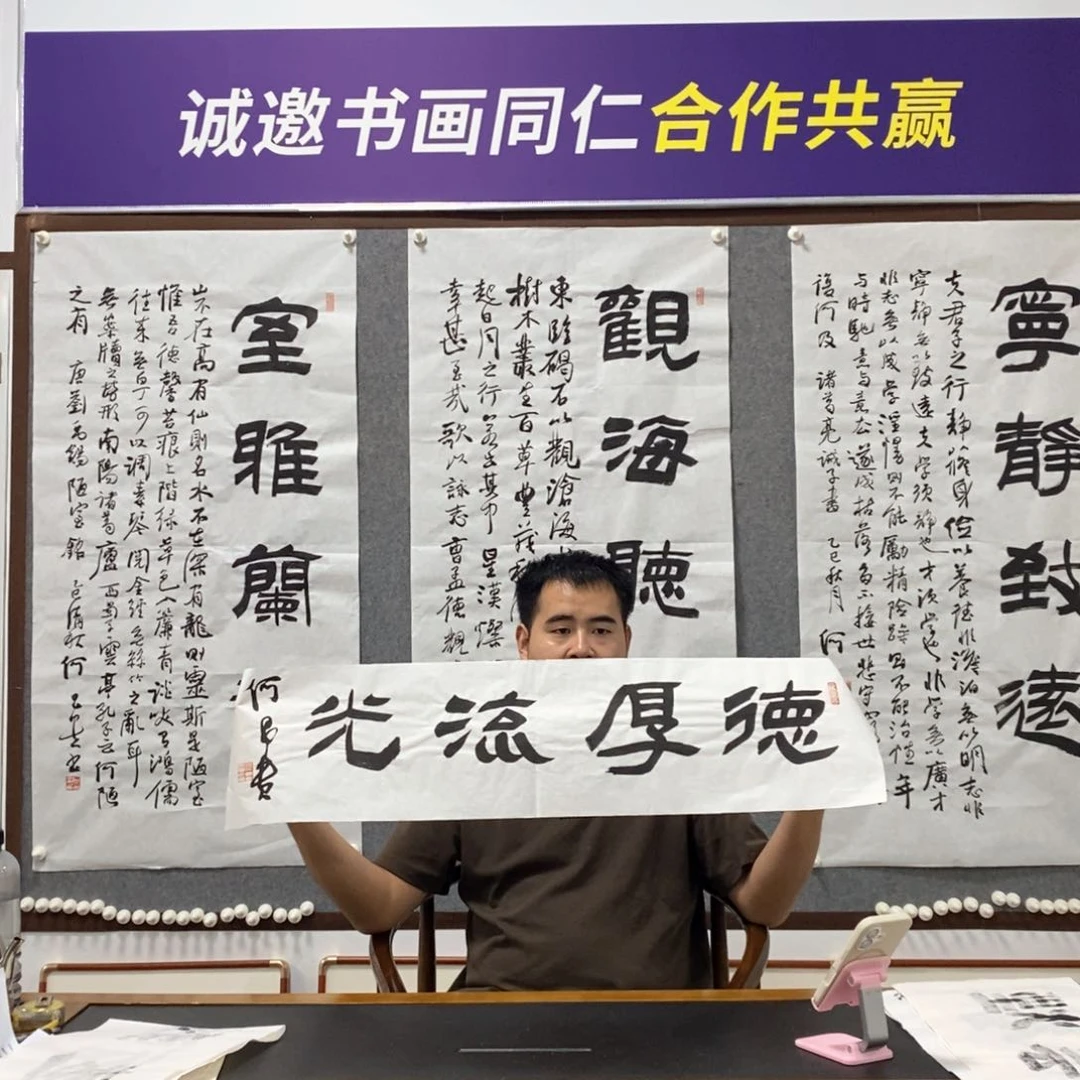 诚邀书画同仁合作共赢
寧靜致遠
夫君子之行靜以修身儉以養德非澹泊無以明志非
寧靜無以致遠夫學須靜也才須學也非學無以廣才
非志無以成學淫慢則不能勵精險躁則不能治性年
與時馳意與歲去遂成枯落多不接世悲守窮
復何及 諸葛亮誡子書 乙巳秋月 何
觀海聽
東臨碣石以觀滄海
樹木叢生百草豐茂秋
起日月之行若出其中星漢燦
幸甚至哉歌以詠志曹孟德觀
室雅蘭
山不在高有仙則名水不在深有龍則靈斯是陋室
惟吾德馨苔痕上階綠草色入簾青談笑有鴻儒
往來無白丁可以調素琴閱金經無絲竹之亂耳
無案牘之勞形南陽諸葛廬西蜀子雲亭孔子云何陋
之有 唐劉禹錫陋室銘 乙巳清秋何
德厚流光
何
書